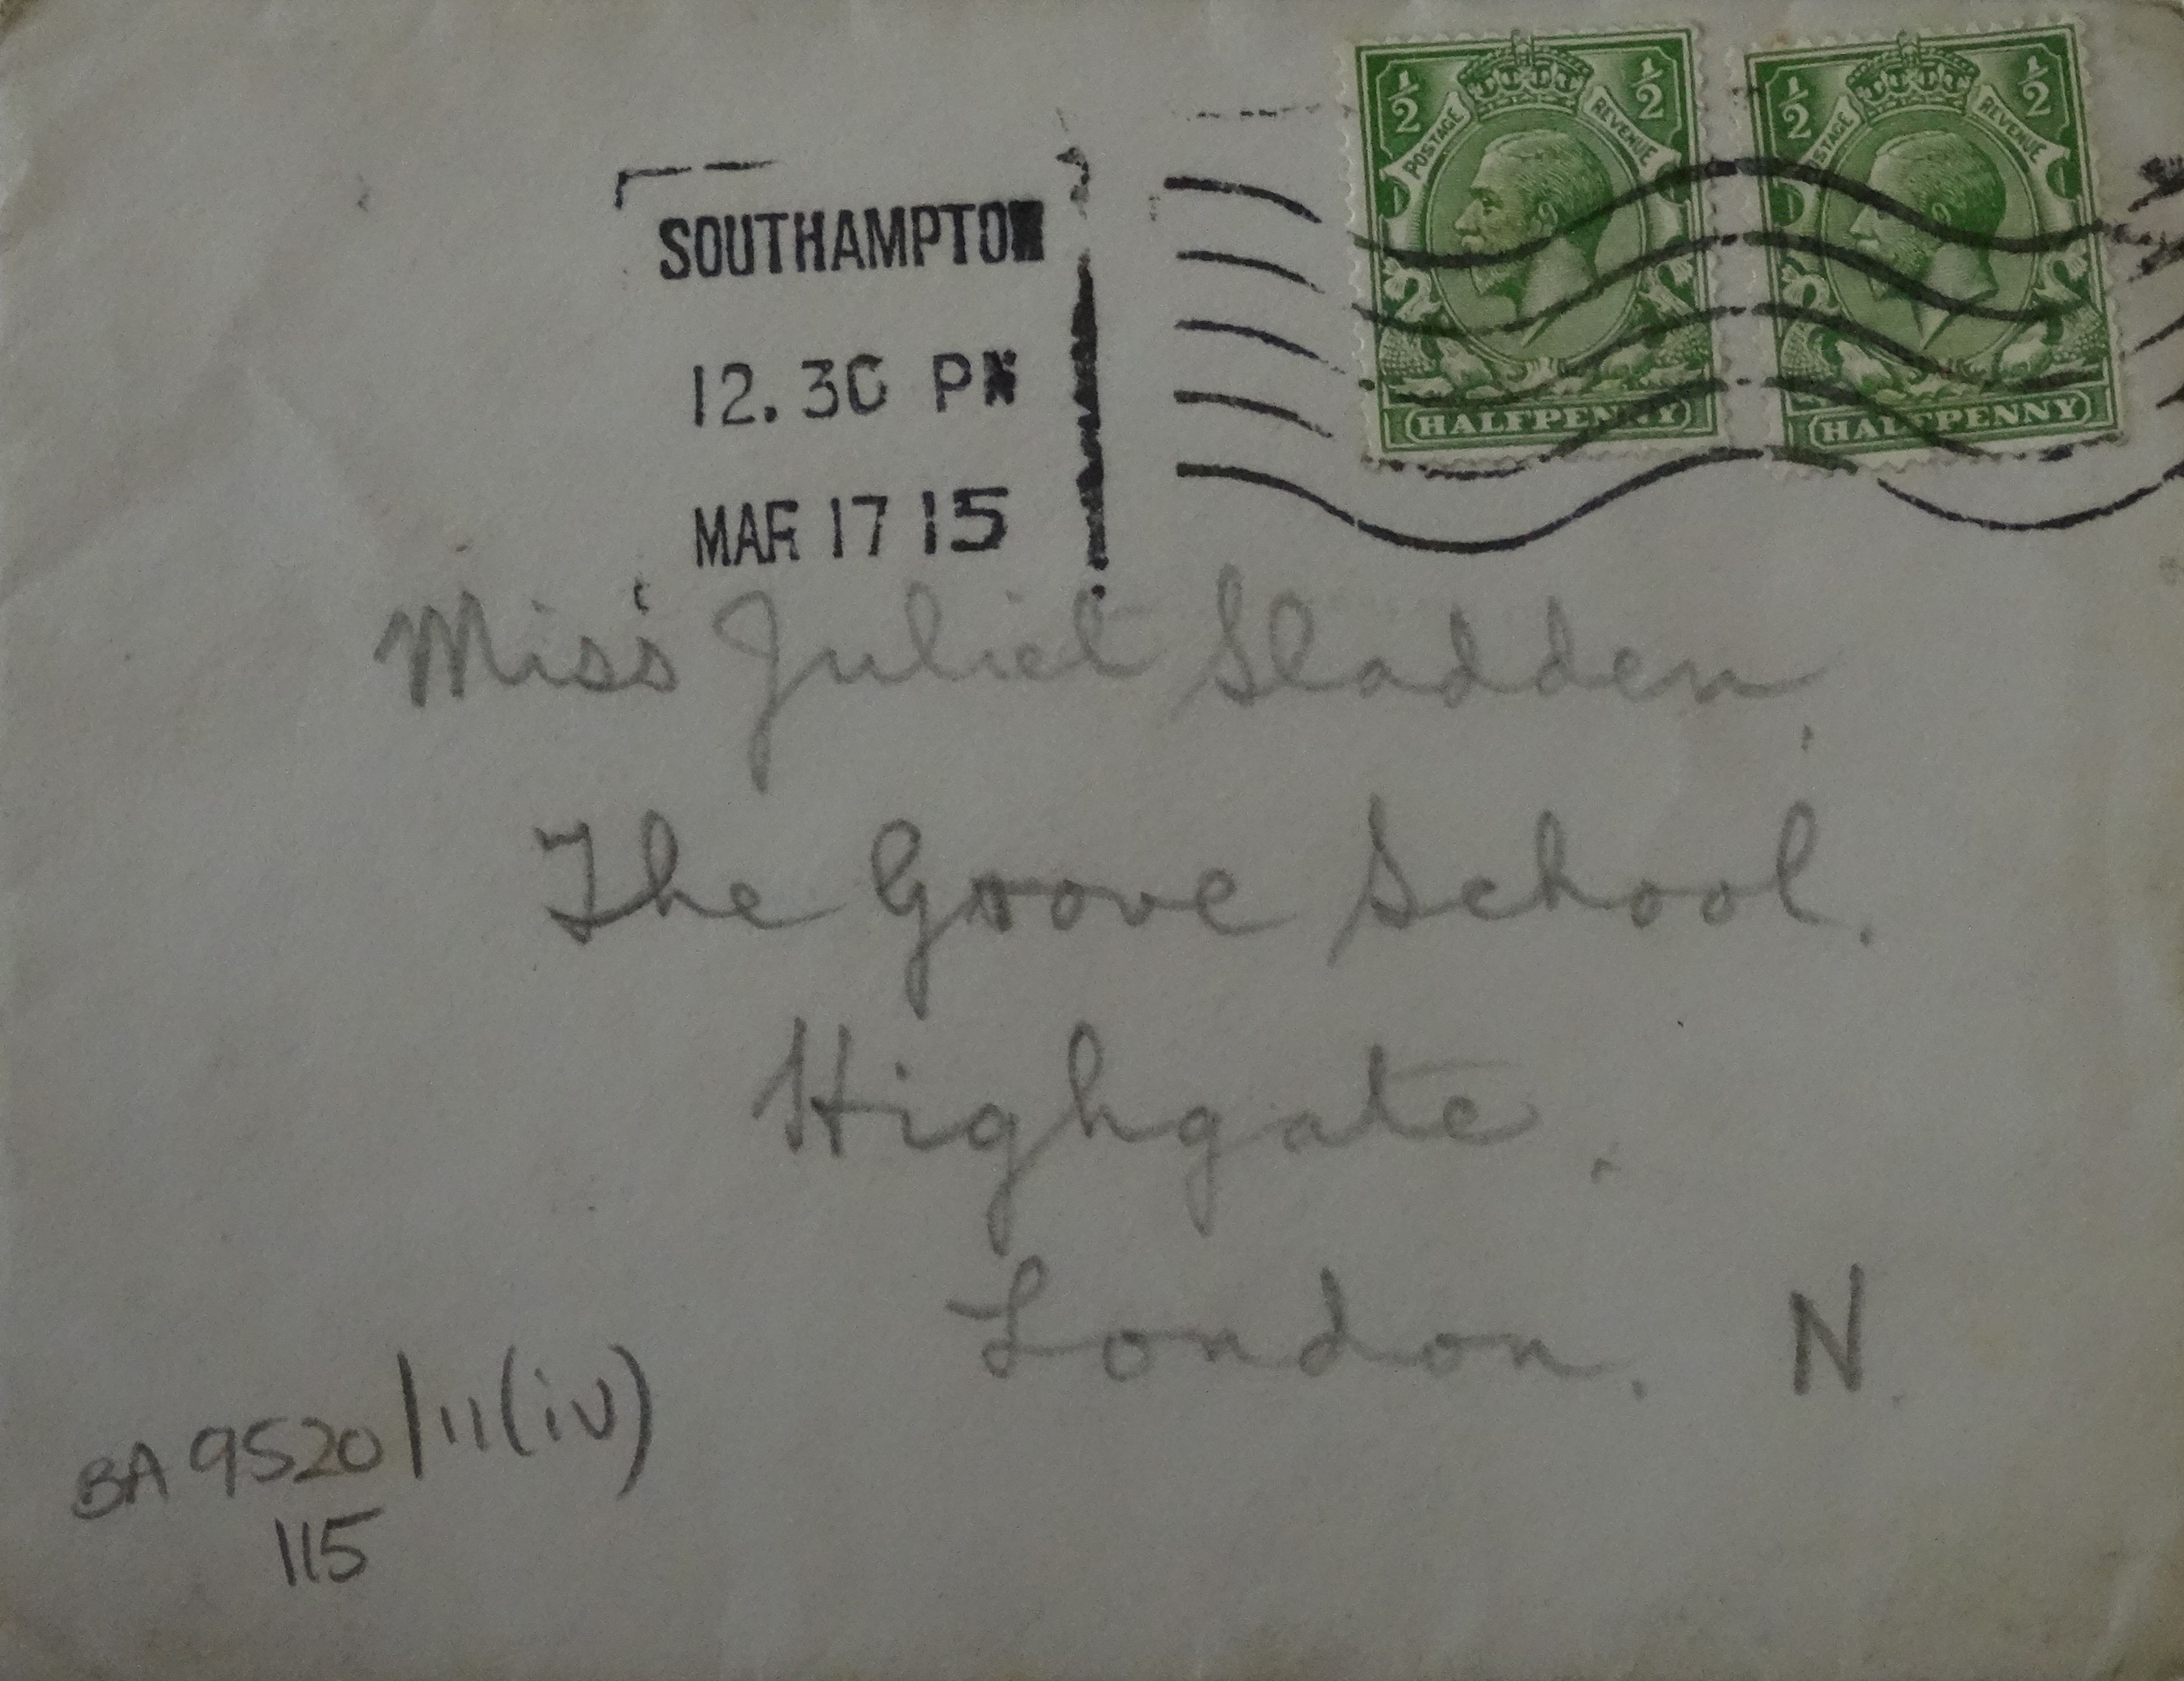 ½ POSTAGE REVENUE ½
HALFPENNY
½ POSTAGE REVENUE ½
HALFPENNY
SOUTHAMPTON
12.30 PM
MAR 17 15
Miss Juliet Sladden,
The Grove School.
Highgate.
London. N.
BA 9520/11(iv)
115